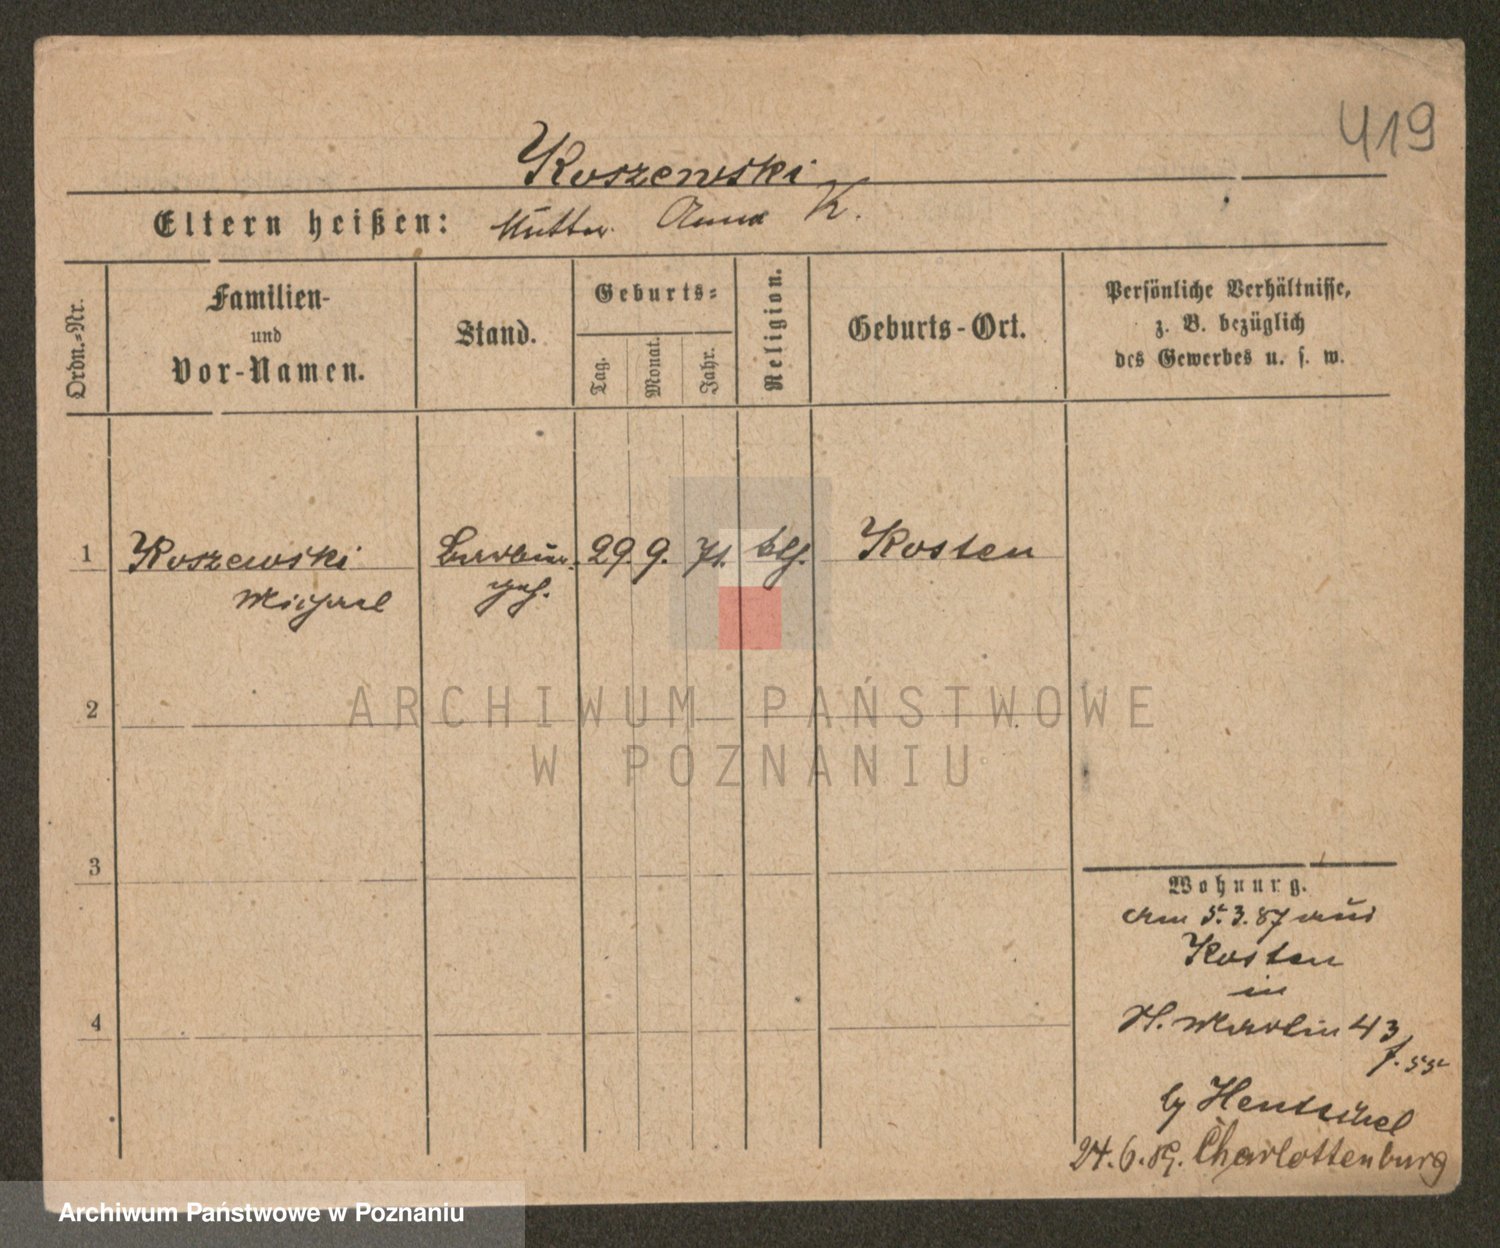 419
Koszewski
Eltern heißen: Mutter Anna K.
Ordn.-Nr.
Familien-
und
Vor-Namen.
Stand.
Geburts-
Tag.
Monat.
Jahr.
Religion.
Geburts-Ort.
Persönliche Verhältnisse,
z. B. bezüglich
des Gewerbes u. s. w.
1 Koszewski 29. 9. 71. Kosten
Michael
2
3
4
Wohnung.
am 5.3.87 aus
Kosten
in
St. Martin 43
by Hentschel
24.6.89. Charlottenburg
ARCHIWUM PAŃSTWOWE
W POZNANIU
Archiwum Państwowe w Poznaniu